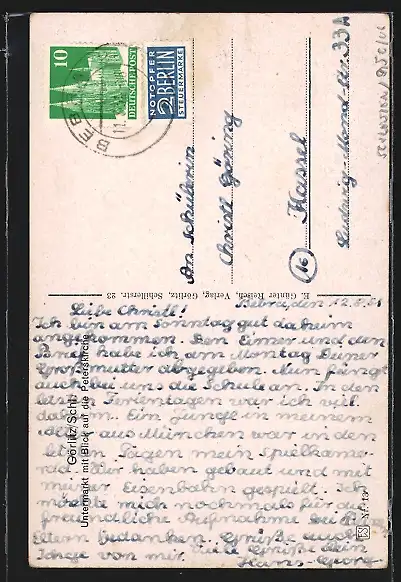 Bebra, den 12.8.51
Liebe Christl!
Ich bin am Sonntag gut daheim
angekommen. Den Eimer und den
habe ich am Montag Eurer
Großmutter abgegeben. Nun fängt
auch bei uns die Schule an. In den
Ferientagen war ich viel
Ein Junge in meinem
aus München war in den
Tagen mein Spielkame-
rad. Wir haben gebaut und mit
meiner Eisenbahn gespielt. Ich
möchte mich nochmals für die
freundliche Aufnahme bei
Eltern bedanken. Grüße auch
von mir. Viele Grüße Dein
Hans-Georg
Görlitz/Schl.
Untermarkt mit Blick auf die Peterskirche
E. Günter Reisch, Verlag, Görlitz, Schillerstr. 23
An Schülerin
Christl Göring
(16) Kassel
Ludwig-Mond-Str. 33A
10
DEUTSCHE POST
NOTOPFER
2 BERLIN
STEUERMARKE
BEBRA